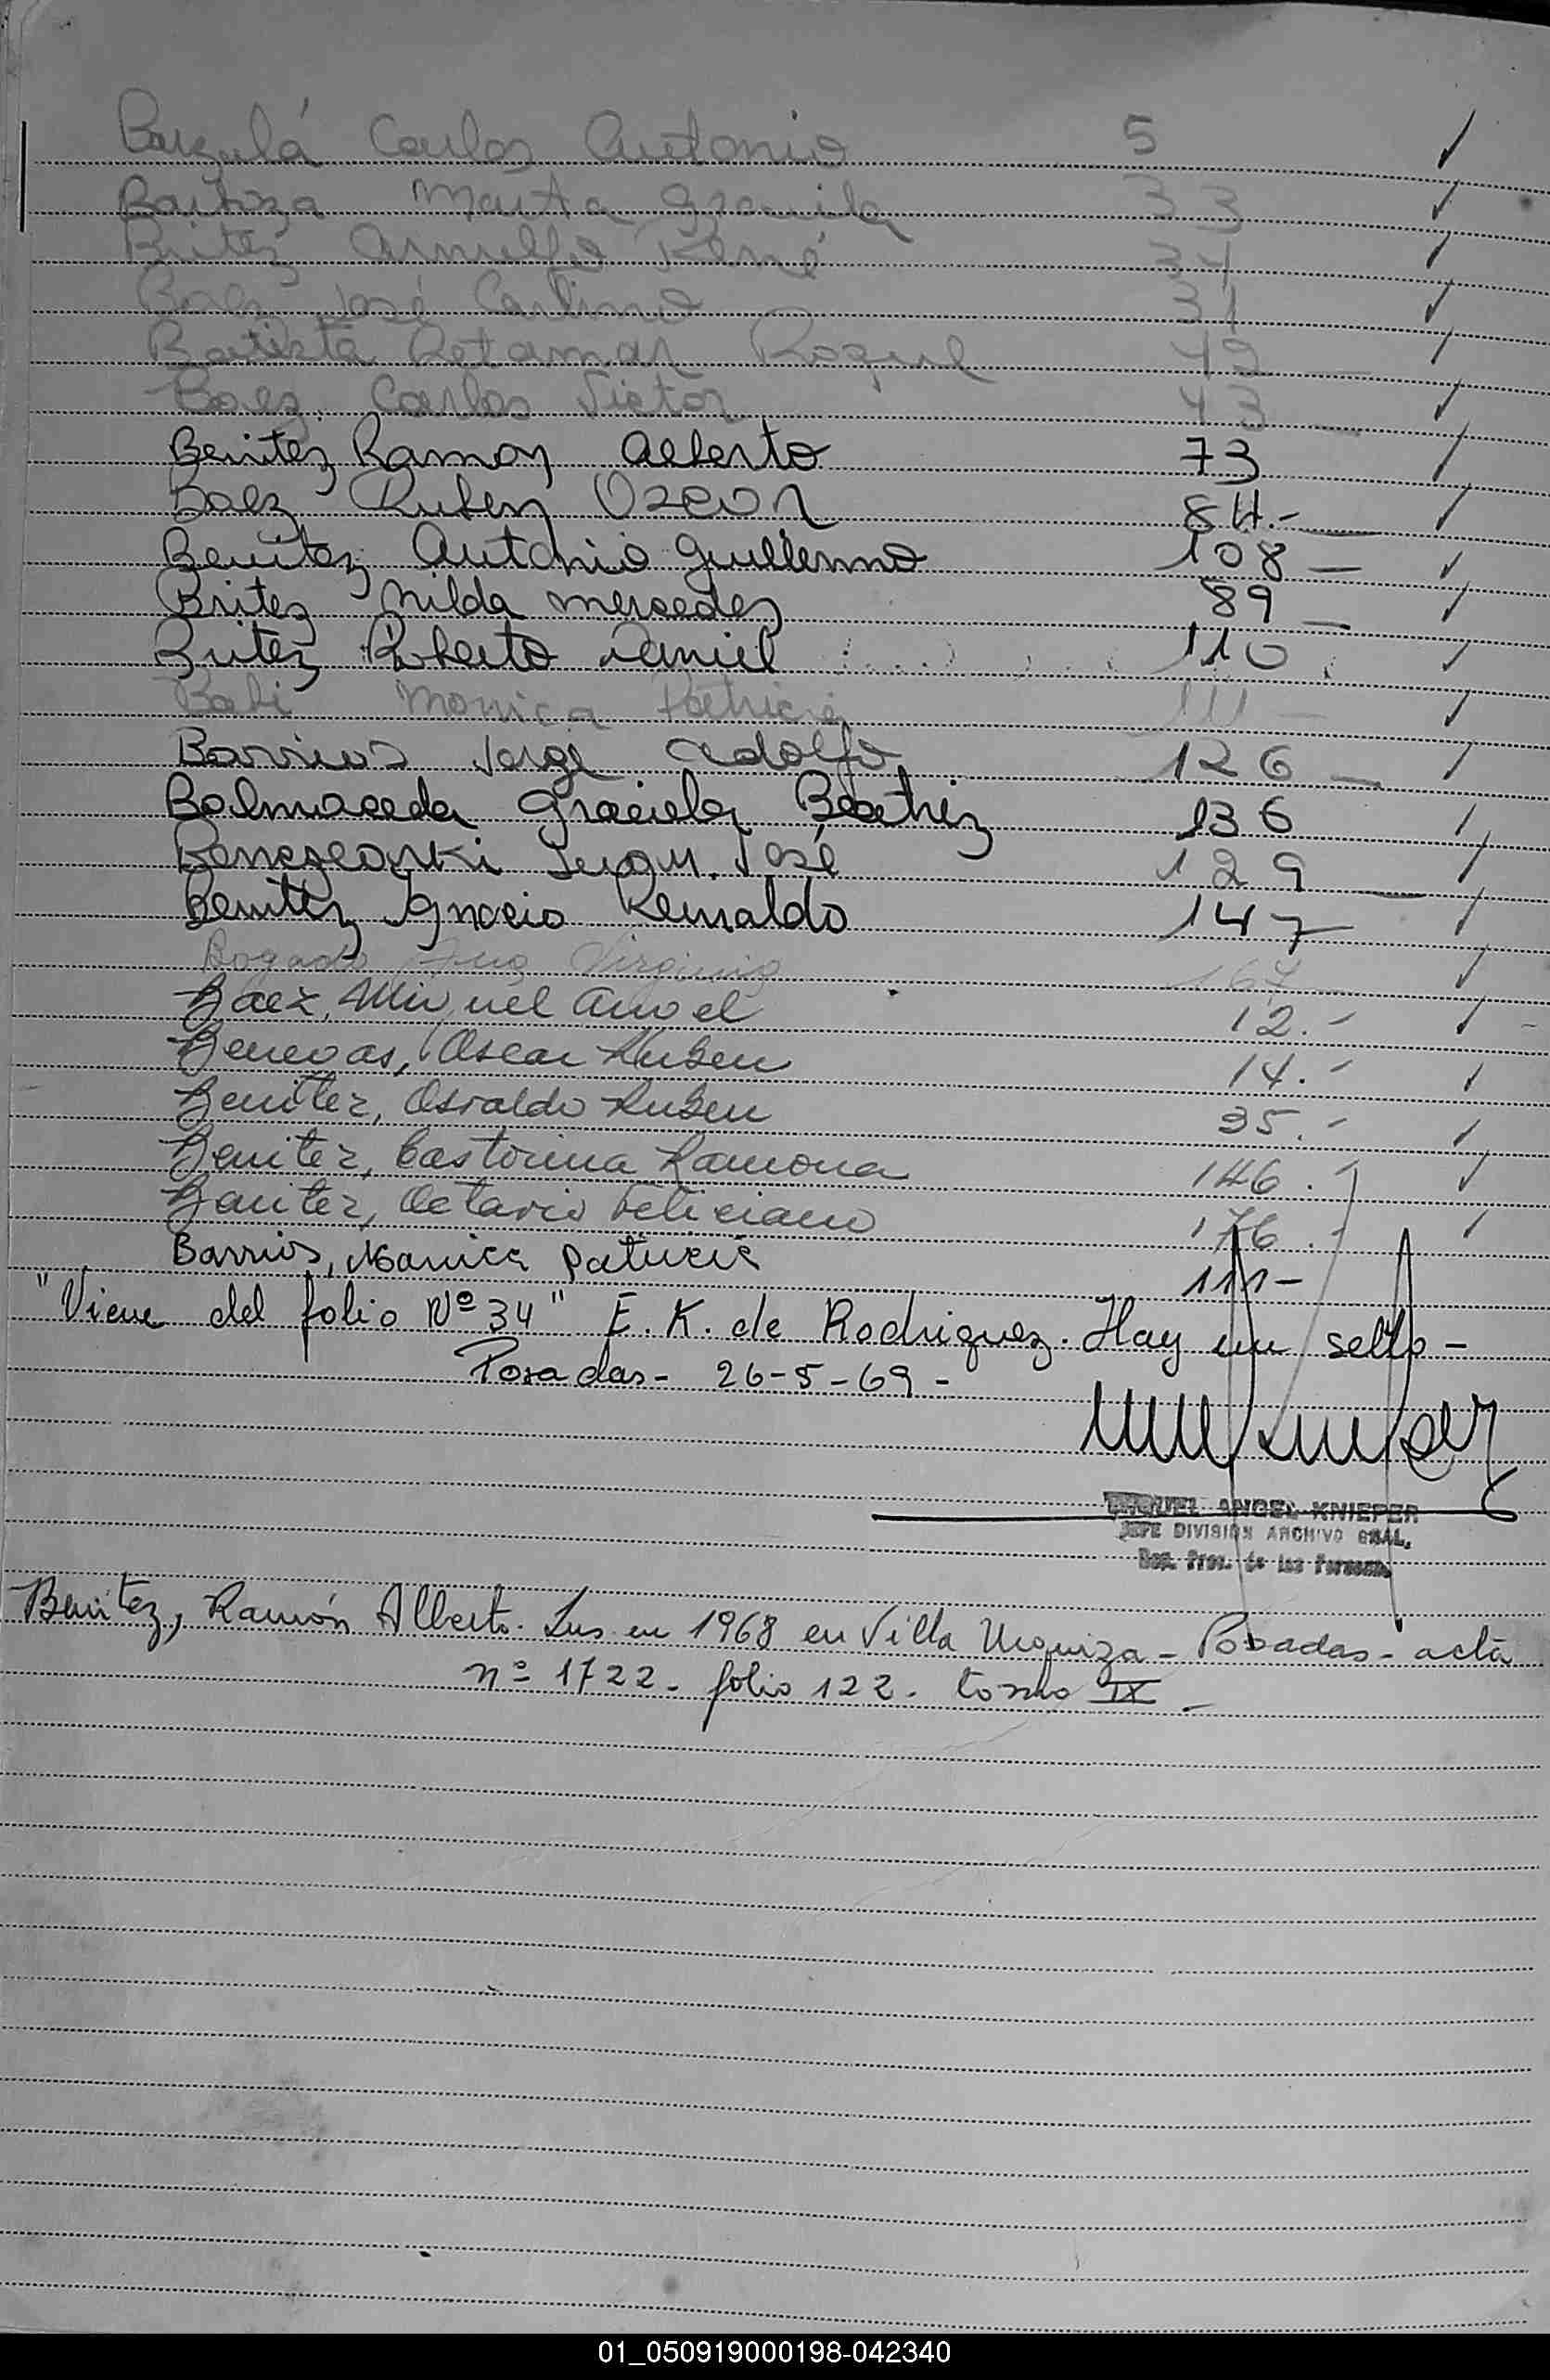 Carlos Antonio 5 ✓
Barboza Marta Graciela 33 ✓
Britez Arnulfo René 34 ✓
Baez José Carlino 31 ✓
Batista Retamar Roque 42 — ✓
Baez. Carlos Victor 43 — ✓
Benitez Ramon Alberto 73 ✓
Baez Ruben Oscar 84.- ✓
Benitez Antonio Guillermo 108 — ✓
Britez Nilda Mercedes 89 — ✓
Britez Roberto Daniel 110 ✓
Monica Patricia 111 — ✓
Barrios Jorge Adolfo 126 — ✓
Balmaceda Graciela Beatriz 136 ✓
José 129 — ✓
Benitez Ignacio Reinaldo 147 ✓
Bogado Ana Virginia ✓
Baez, Miguel Angel 12.- ✓
Oscar Ruben 14.- ✓
Benitez, Osvaldo Ruben 35.- ✓
Benitez, Castorina Ramona 146.- ✓
Benitez, Octavio Feliciano 176.- ✓
Barrios, Monica Patricia 111-
"Viene del folio Nº 34" E. K. de Rodriguez. Hay un sello-
Posadas- 26-5-69-
MIGUEL ANGEL KNIEPER
JEFE DIVISION ARCHIVO GRAL.
Reg. Prov. de las Personas
Benitez, Ramón Alberto. Ins en 1968 en Villa Urquiza - Posadas - acta
nº 1722- folio 122- tomo IX-
01_050919000198-042340